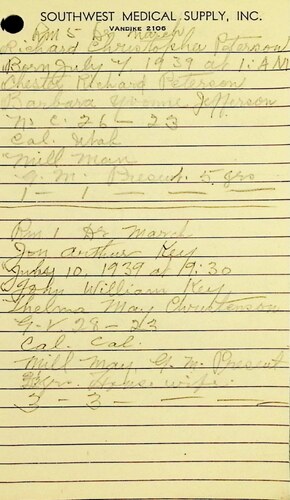 SOUTHWEST MEDICAL SUPPLY, INC.
VANDIKE 2106
Rm 5 Dr March
Richard Christopher Peterson
Born July 7 1939 at 1: A M
Richard Peterson
Barbara Yvonne Jefferson
N. C. 26 - 23
Cal. Utah
Mill Man
G. M. Present 5 yrs
1 - 1 - - -
Rm 1 Dr March
Jon Arthur Key
July 10, 1939 at 9:30
John William Key
Thelma May Christenson
G. V 29 - 23
Cal. Cal.
Mill May G. M. Present
House wife
3 - 3 - - -